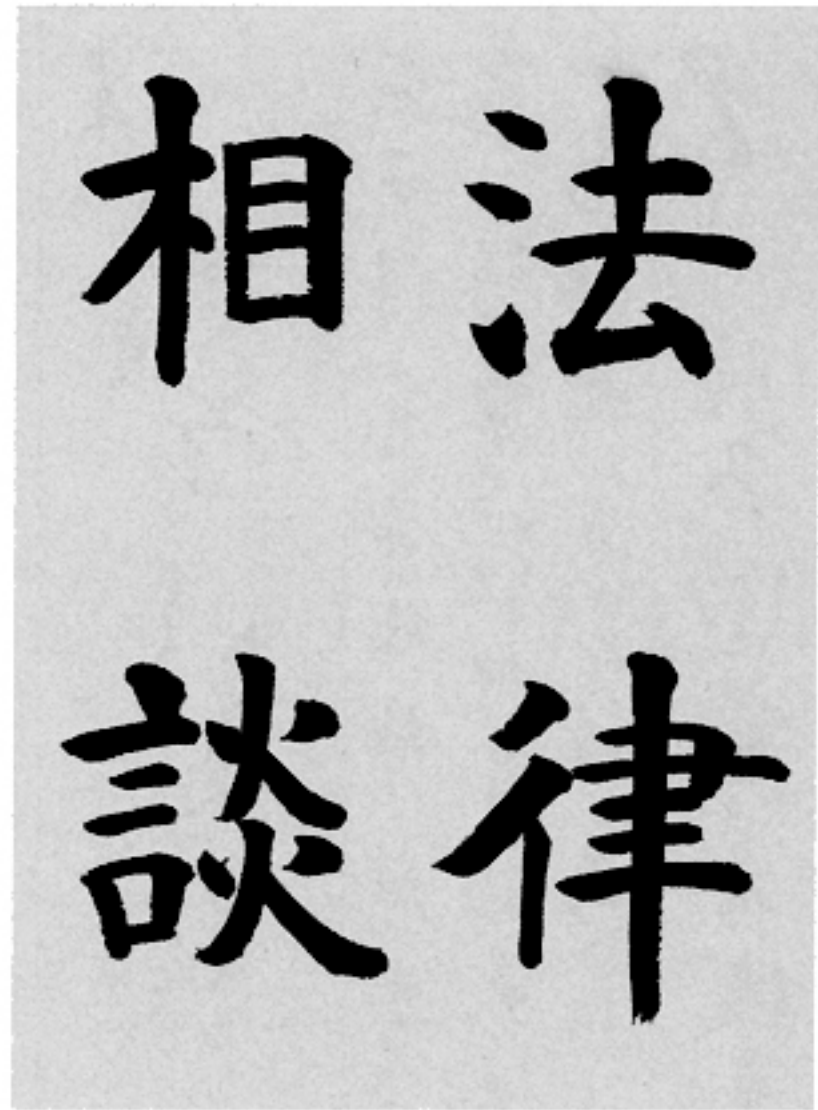 法律
相談